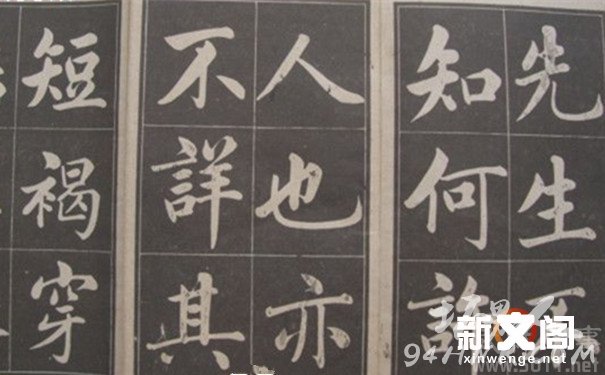 先生
知何
人也亦
不詳其
短褐穿
新文阁
www.xinwenge.net